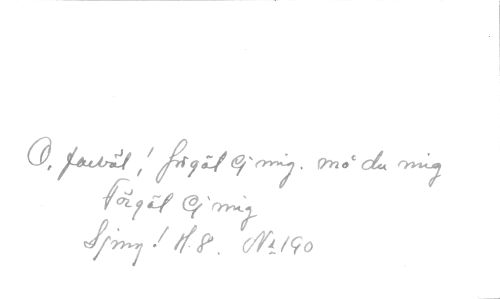 O, farväl! förgät Ej mig. må du mig
Förgät Ej mig
Sjung! H. 8. No 190